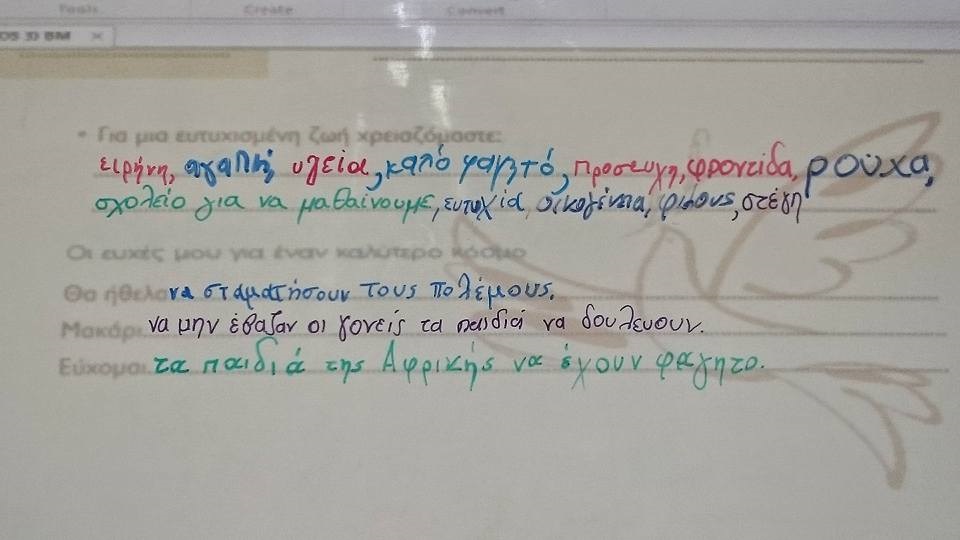 Tools Create Convert
• Για μια ευτυχισμένη ζωή χρειαζόμαστε:
ειρήνη, αγαπή, υγεία, καλό φαγητό, προσευχη, φροντίδα, ρούχα,
σχολείο για να μαθαίνουμε, ευτυχία, οικογένεια, φίλους, στέγη
Οι ευχές μου για έναν καλύτερο κόσμο
Θα ήθελα να σταματήσουν τους πολέμους.
Μακάρι να μην έβαζαν οι γονείς τα παιδιά να δουλευουν.
Εύχομαι τα παιδιά της Αφρικής να έχουν φαγητο.